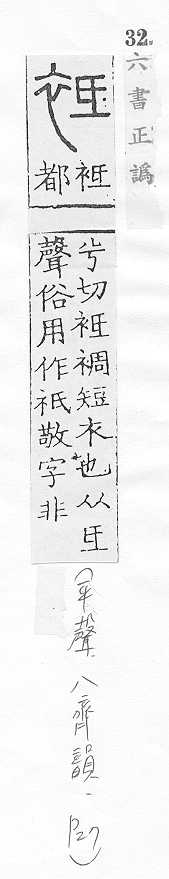 32.
六書正譌
袛
都
兮切袛裯短衣也从氐
聲俗用作祇敬字非
(平聲 八齊韻. P27)